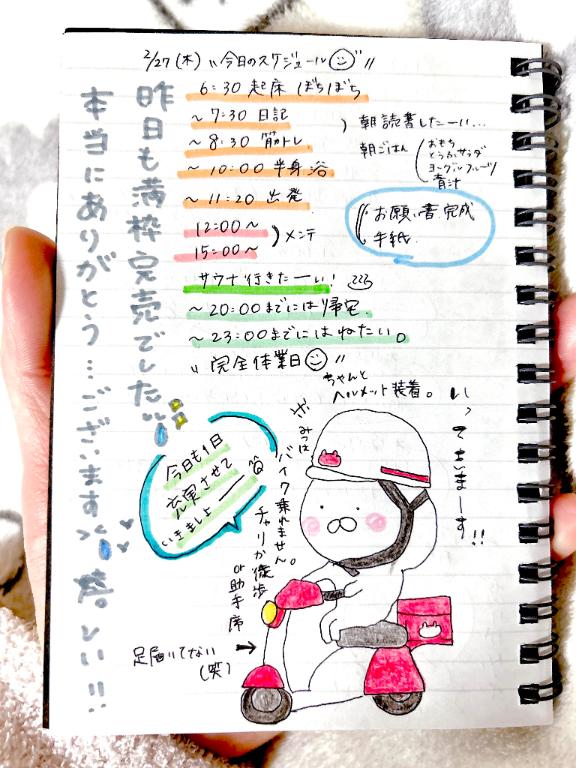 2/27(木) "今日のスケジュール"
6:30 起床 ぼちぼち
~7:30 日記
~8:30 筋トレ
~10:00 半身浴
~11:20 出発
12:00~
15:00~
)メンテ
サウナ行きたーい!
~20:00までには帰宅.
~23:00までにはねたい。
"完全休業日"
)朝読書したーい...
朝ごはん
おもち
とうふサラダ
ヨーグルフルーツ
青汁
お願い書 完成
手紙
昨日も満枠完売でした
本当にありがとう...ございます
嬉。しい!!
今日も1日
充実させて
いきましょー
ちゃんと
ヘルメット装着。
いってきまーす!!
※みつは
バイク乗れません。
チャリか徒歩
or助手席
足届いてない
(笑)